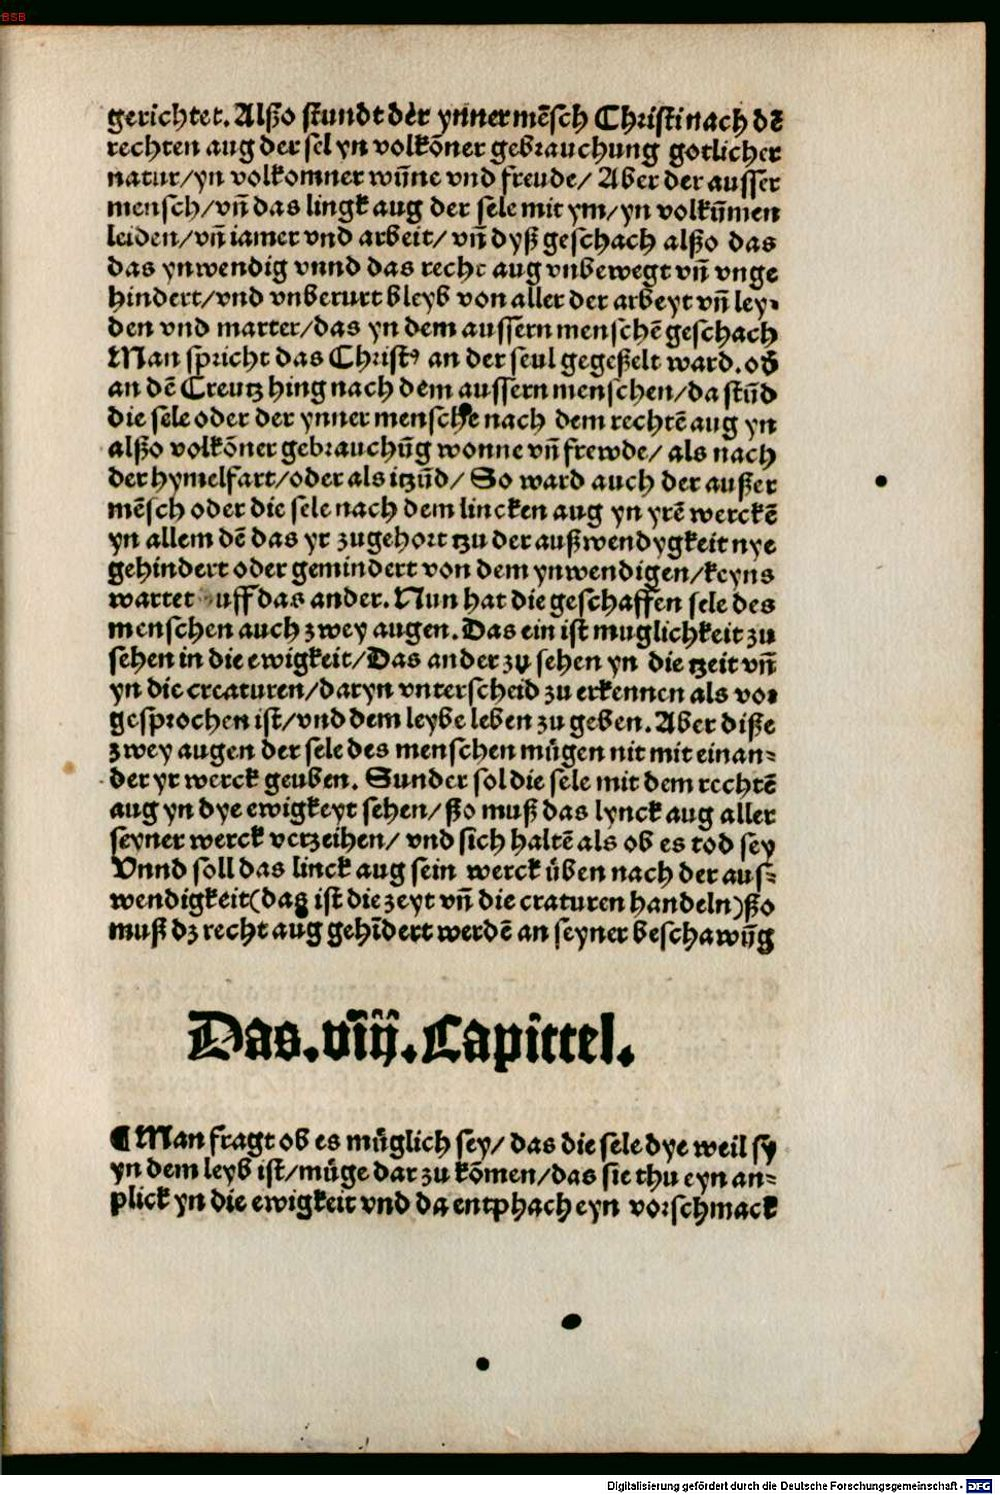 BSB
gerichtet. Alßo stundt der ynner mēsch Christi nach dē
rechten aug der sel yn volkōner gebrauchung gotlicher
natur/yn volkomner wūne vnd freude/ Aber der ausser
mensch/vn̄ das lingk aug der sele mit ym/yn volkūmen
leiden/vn̄ iamer vnd arbeit/ vn̄ dyß geschach alßo das
das ynwendig vnnd das recht aug vnbewegt vn̄ vnge
hindert/vnd vnberurt bleyb von aller der arbeyt vn̄ ley-
den vnd marter/das yn dem aussern menschē geschach
Man spricht das Christꝰ an der seul gegeßelt ward. oď
an dē Creutz hing nach dem aussern menschen/da stūd
die sele oder der ynner mensche nach dem rechtē aug yn
alßo volkōner gebrauchūg wonne vn̄ frewde/ als nach
der hymelfart/oder als itzūd/ So ward auch der außer
mēsch oder die sele nach dem lincken aug yn yrē werckē
yn allem dē das yr zugehort tzu der außwendygkeit nye
gehindert oder gemindert von dem ynwendigen/keyns
wartet uff das ander. Nun hat die geschaffen sele des
menschen auch zwey augen. Das ein ist muglichkeit zu
sehen in die ewigkeit/Das ander zu sehen yn die tzeit vn̄
yn die creaturen/daryn vnterscheid zu erkennen als vor
gesprochen ist/vnd dem leybe leben zu geben. Aber diße
zwey augen der sele des menschen mügen nit mit einan-
der yr werck geuben. Sunder sol die sele mit dem rechtē
aug yn dye ewigkeyt sehen/ ßo muß das lynck aug aller
seyner werck vertzeihen/ vnd sich haltē als ob es tod sey
Vnnd soll das linck aug sein werck üben nach der aus-
wendigkeit(das ist die zeyt vn̄ die craturen handeln)ßo
muß dz recht aug gehīdert werdē an seyner beschawūg
Das.viij.Capittel.
¶ Man fragt ob es müglich sey/ das die sele dye weil sy
yn dem leyb ist/müge dar zu kōmen/das sie thu eyn an-
plick yn die ewigkeit vnd da entphach eyn vorschmack
Digitalisierung gefördert durch die Deutsche Forschungsgemeinschaft - DFG